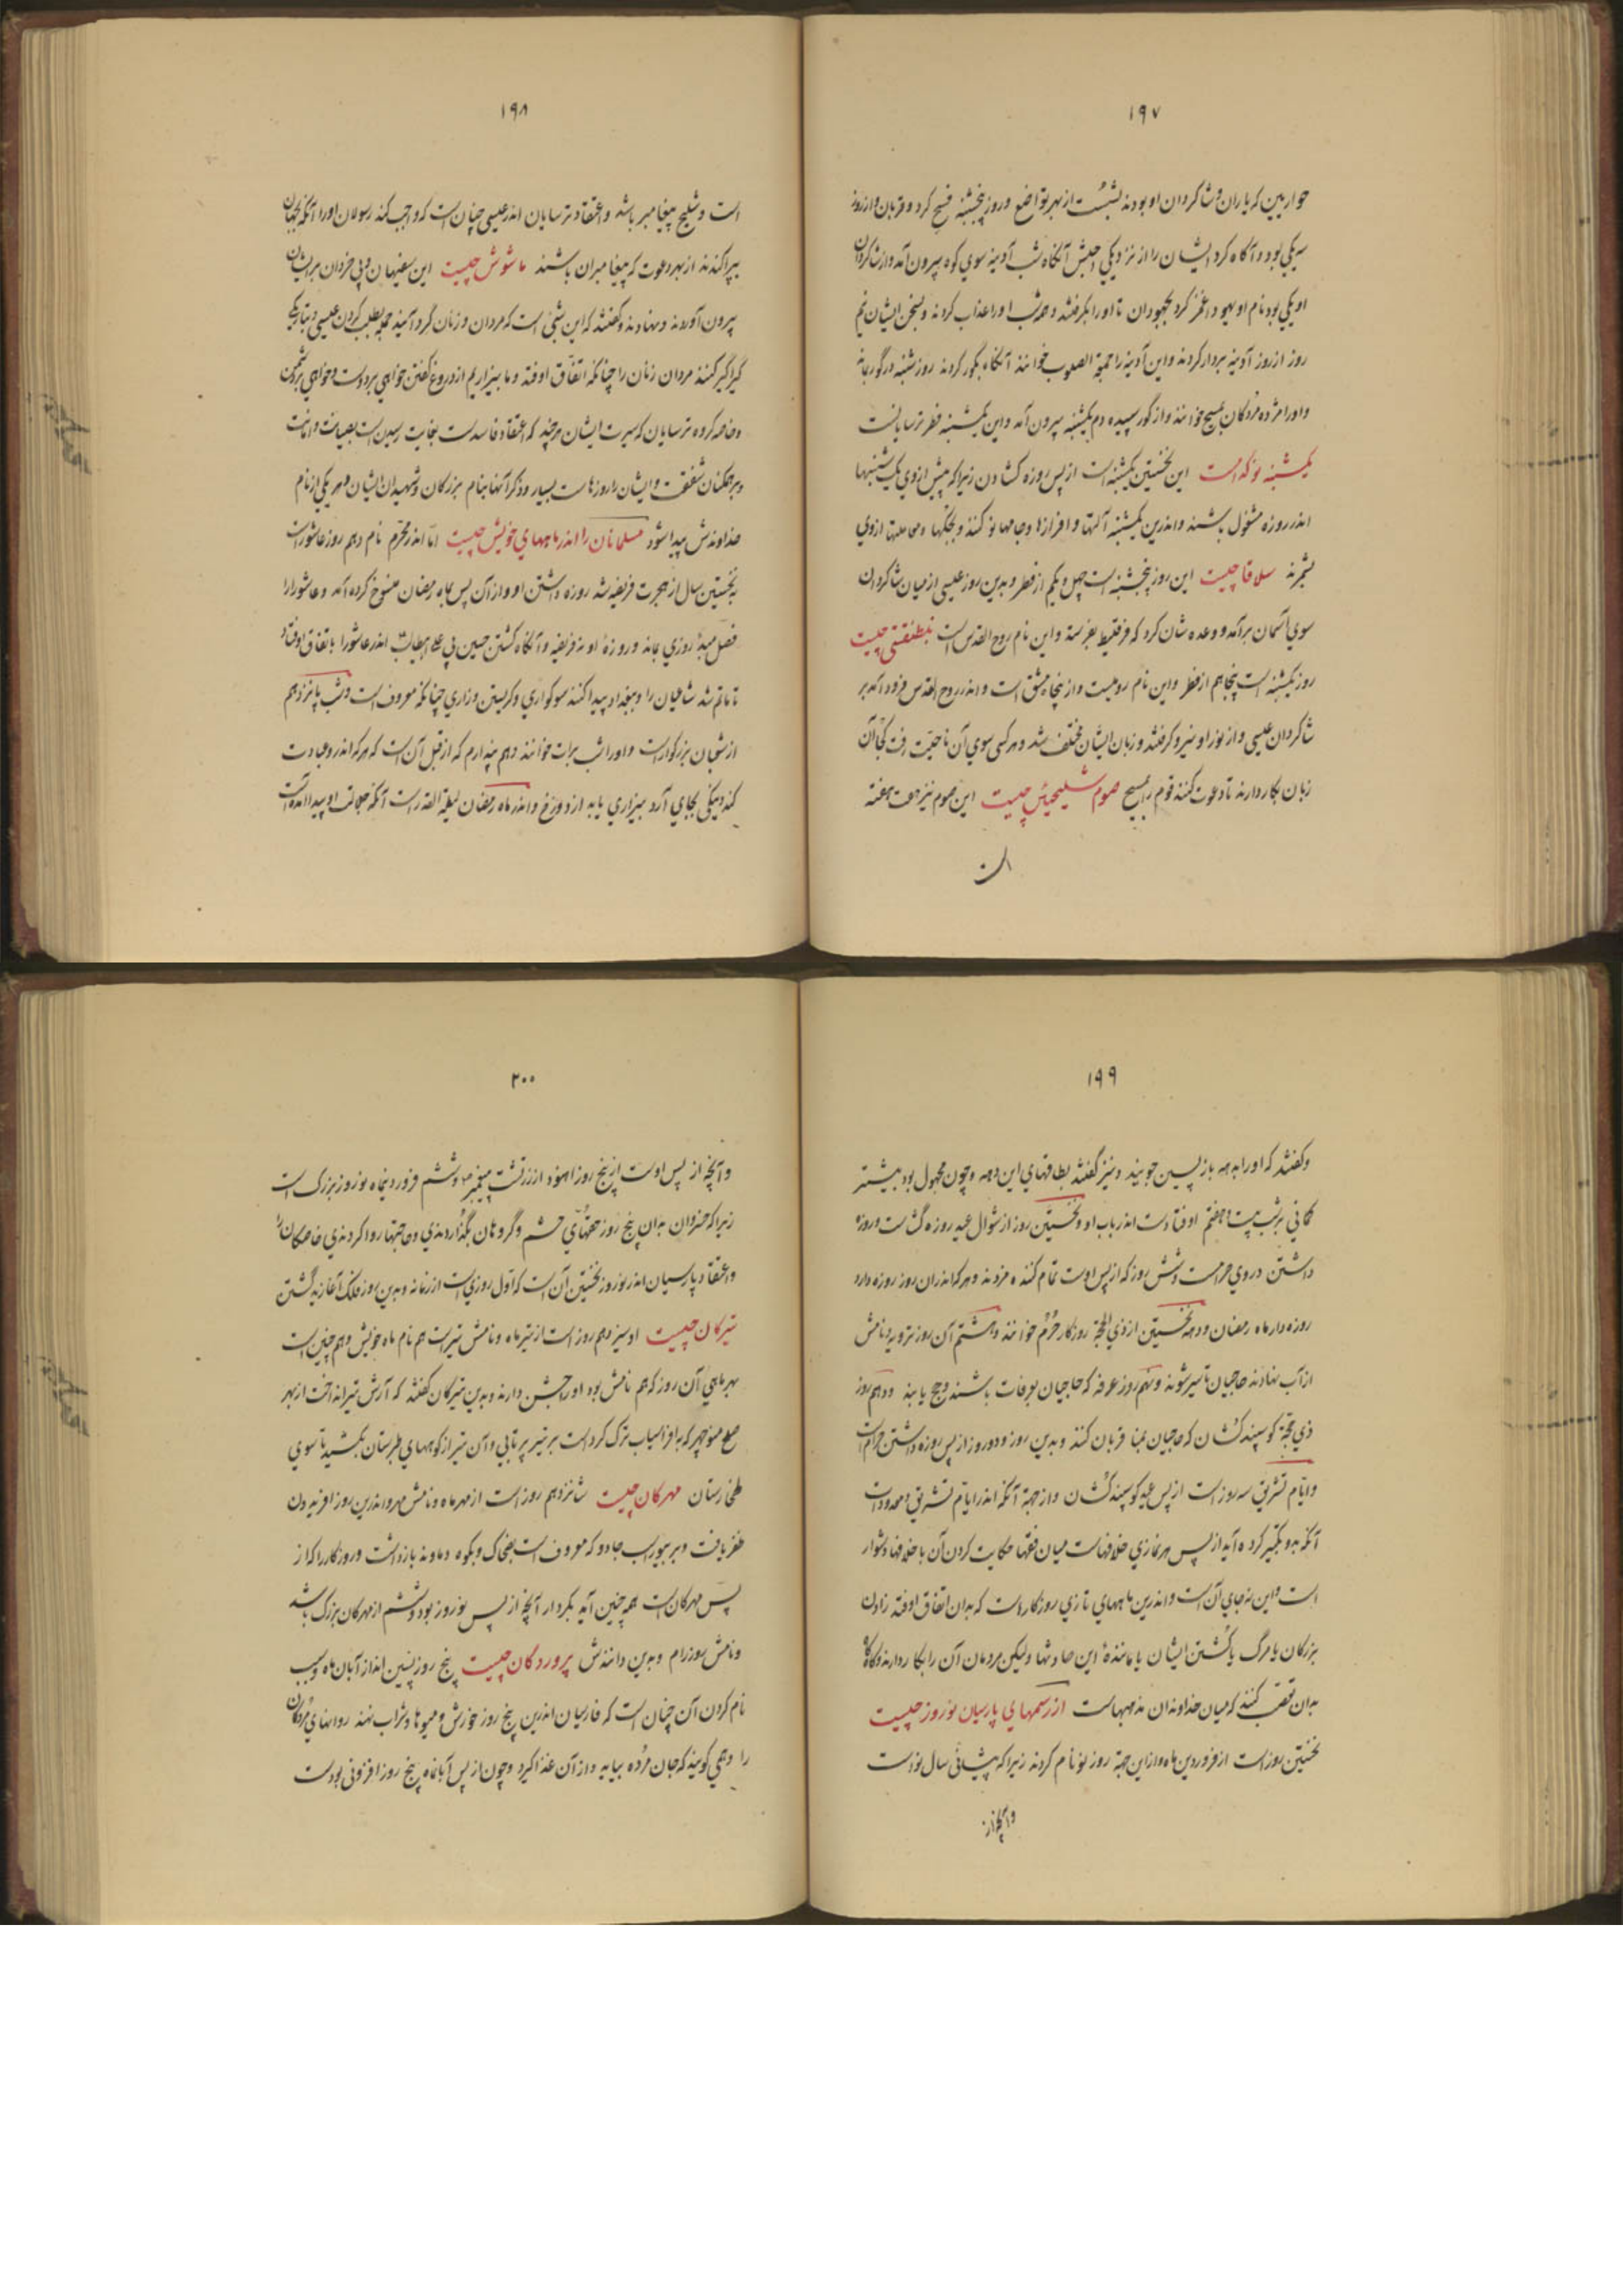 ۱۹۷
حواریین که یاران و شاکردان او بودند بشست از بهر تواضع و روز پنجشنبه فسح کرد و قربان و از روز
سه یکی بود و آکاه کرد ایشان را از نزدیکی آنکاه شب آدینه سوی کوه بیرون آمد و از شاکردان
او یکی بود نام او یهودا غمز کرد بجهودان تا او را بکرفتند و همه شب او را عذاب کردند و بسخن ایشان نیم
روز از روز آدینه بردار کردند و این آدینه را جمعة الصلوب خوانند آنکاه بکور کردند روز شنبه در کور بماند
و او را مژده مردکان مسیح خوانند و از کور سپیده دم یکشنبه بیرون آمد و این یکشنبه فطر ترسایانست
یکشنبه نو کدامست این نخستین یکشنبه است از پس روزه کشادن زیرا که پیش از وی یکشنبها
اندر روزه مشغول باشند و اندرین یکشنبه آلتها و افزازها و جامها نو کنند و بجکها و معاملتها ازوی
بشمرند سلاقا چیست این روز پنجشنبه است چهل و یکم از فطر و بدین روز عیسی از میان شاکردان
سوی آسمان برآمد و وعده شان کرد که فرقلیط بفرستد و این نام روح القدس است بنطقسطی چیست
روز یکشنبه است پنجاهم از فطر و این نام رومیست و از پنجاه مشتق است و اندر روح القدس فرود آمد بر
شاکردان عیسی و از نور او نیرو کرفتند و زبان ایشان مختلف شد و هر کسی سوی آن ناحیت رفت کجا آن
زبان بکار دارند تا دعوت کنند قوم را بمسیح صوم شلیحیش چیست این صوم نیز هفت هفته
است
۱۹۸
است و شلیح پیغامبر باشد و اعتقاد ترسایان اندر عیسی چنان است که واجب کند رسولان او را آنکه بجهان
بپراکندند از بهر دعوت که پیغامبران باشند ماشوش چیست این سفیهان و بی خردان بر ایشان
بیرون آوردند و نهادند و کفتند که این شبی است که مردان و زنان کرد آمیند جمله بطلب کردن عیسی و بتاریکی
کیراکیر کنند مردان زنان را چنانکه اتفاق اوفتد و ما بیزاریم از دروغ کفتن خواهی بر دوست و خواهی بر دشمن
و خاصه کروه ترسایان که سیرت ایشان هر چند که اعتقاد فاسدست بغایت رسیدن است بصیانت و امانت
و بر همکنان شفقت و ایشان را روزهاست بسیار و ذکرآنها بنام بزرکان و شهیدان ایشان و هر یکی از نام
خداوندش پیدا شود مسلمانان را اندر ماههای خویش چیست اما اندر محرم نام دهم روز عاشورا است
به نخستین سال از هجرت فریضه شد روزه داشتن او و از آن پس بماه رمضان منسوخ کرده آمد و عاشورا را
فضل روزی بماند و روزه او نه فریضه و آنکاه کشتن حسین بن علی ابیطالب اندر عاشورا باتفاق اوفتاد
تا ماتم شد شاعیان را و ببغداد پیدا کنند سوکواری و کریستن و زاری چنانکه معروف است و شب پانزدهم
از شعبان بزرکوارست و او را شب برات خوانند و همی پندارم که از قبل آن است که هر که اندر و عبادت
کند و نیکی بجای آرد بیزاری یابد از دوزخ و اندر ماه رمضان لیلة القدر است آنکه جلالت او پیدا آمده است
۱۹۹
و کفتند که او را به دهه بازپسین جویند و نیز کفتند بطاقهای این دهه و چون مجهول بود بیشتر
کمانی بر شب بیست و هفتم اوفتاد است اندر باب او و نخستین روز از شوال عید روزه کشا ست و روزه
داشتن در وی حرامست و شش روز که از پس اوست تمام کننده مزدند و هر که اندر ان روز روزه دارد
روزه دار ماه رمضان و دهه نخستین از ذی الحجة روزکار حرم خوانند و هشتم آن روز ترویه و نامش
از آب نهادند حاجیان تا سیر شوند و نهم روز عرفه که حاجیان بعرفات باشند و حج یابند و دهم روز
ذی حجة کوسپند کشان که حاجیان بمنا قربان کنند و بدین روز و دو روز از پس روزه داشتن حرام است
و ایام تشریق سه روز است از پس عید کوسپند کشان و از جهة آنکه اندر ایام تشریق و معدودات
آنکه بدو تکبیر کرده آید از پس هر نمازی خلافهاست میان فقها حکایت کردن آن با خلافها دشوار
است و این نه جای آن است و اندرین ماههای تازی روزکارهاست که بدان اتفاق اوفتد زادن
بزرکان یا مرک یا کشتن ایشان یا مانندهٔ این حادثها و لیکن مردمان آن را بکار دارند و کاه کاه
بدان تعصب کنند که میان خداوندان مذهبهاست از رسمهای پارسیان نوروز چیست
نخستین روز است از فروردین ماه و از این جهة روز نو نام کردند زیرا که پیشانی سال نو است
و آنچه از
۲۰۰
و آنچه از پس اوست از پنج روز و ششم فروردینماه نوروز بزرک است
زیرا که خسروان بدان پنج روز حقهای حشم و کروهان بکذاردندی و حاجتها روا کردندی خاصکان را
و اعتقاد پارسیان اندر نوروز نخستین آن است که اول روزی است از زمانه و بدین روز فلک آغازید کشتن
تیرکان چیست او سیزدهم روز است از تیر ماه و نامش تیر است هم نام ماه خویش و هم چنین است
بهر ماهی آن روز که هم نامش بود او را جشن دارند و بدین تیرکان کفتند که آرش تیر انداخت از بهر
صلح منوچهر که با افراسیاب ترک کردست بر تیر پرتابی و آن تیر از کوههای طبرستان بکشید تا سوی
طخارستان مهرکان چیست شانزدهم روز است از مهر ماه و نامش مهر و اندرین روز افریدون
ظفر یافت بر بیوراسب جادو که معروف است بضحاک و بکوه دماوند بازداشت و روزکار را که از
پس مهرکان است همه چنین آید بکردار آنچه از پس نوروز بود و ششم از مهرکان بزرک باشد
و نامش روز رام و بدین دانندش پروردکان چیست پنج روز پسین اندر آبان ماه و سبب
نام کردن آن چنان است که فارسیان اندرین پنج روز خورش و میوها و شراب نهند روانهای مردکان
را و همی کویند که جان مرده بیاید و از آن غذا کیرد و چون از پس آبانماه پنج روز افزونی بودست